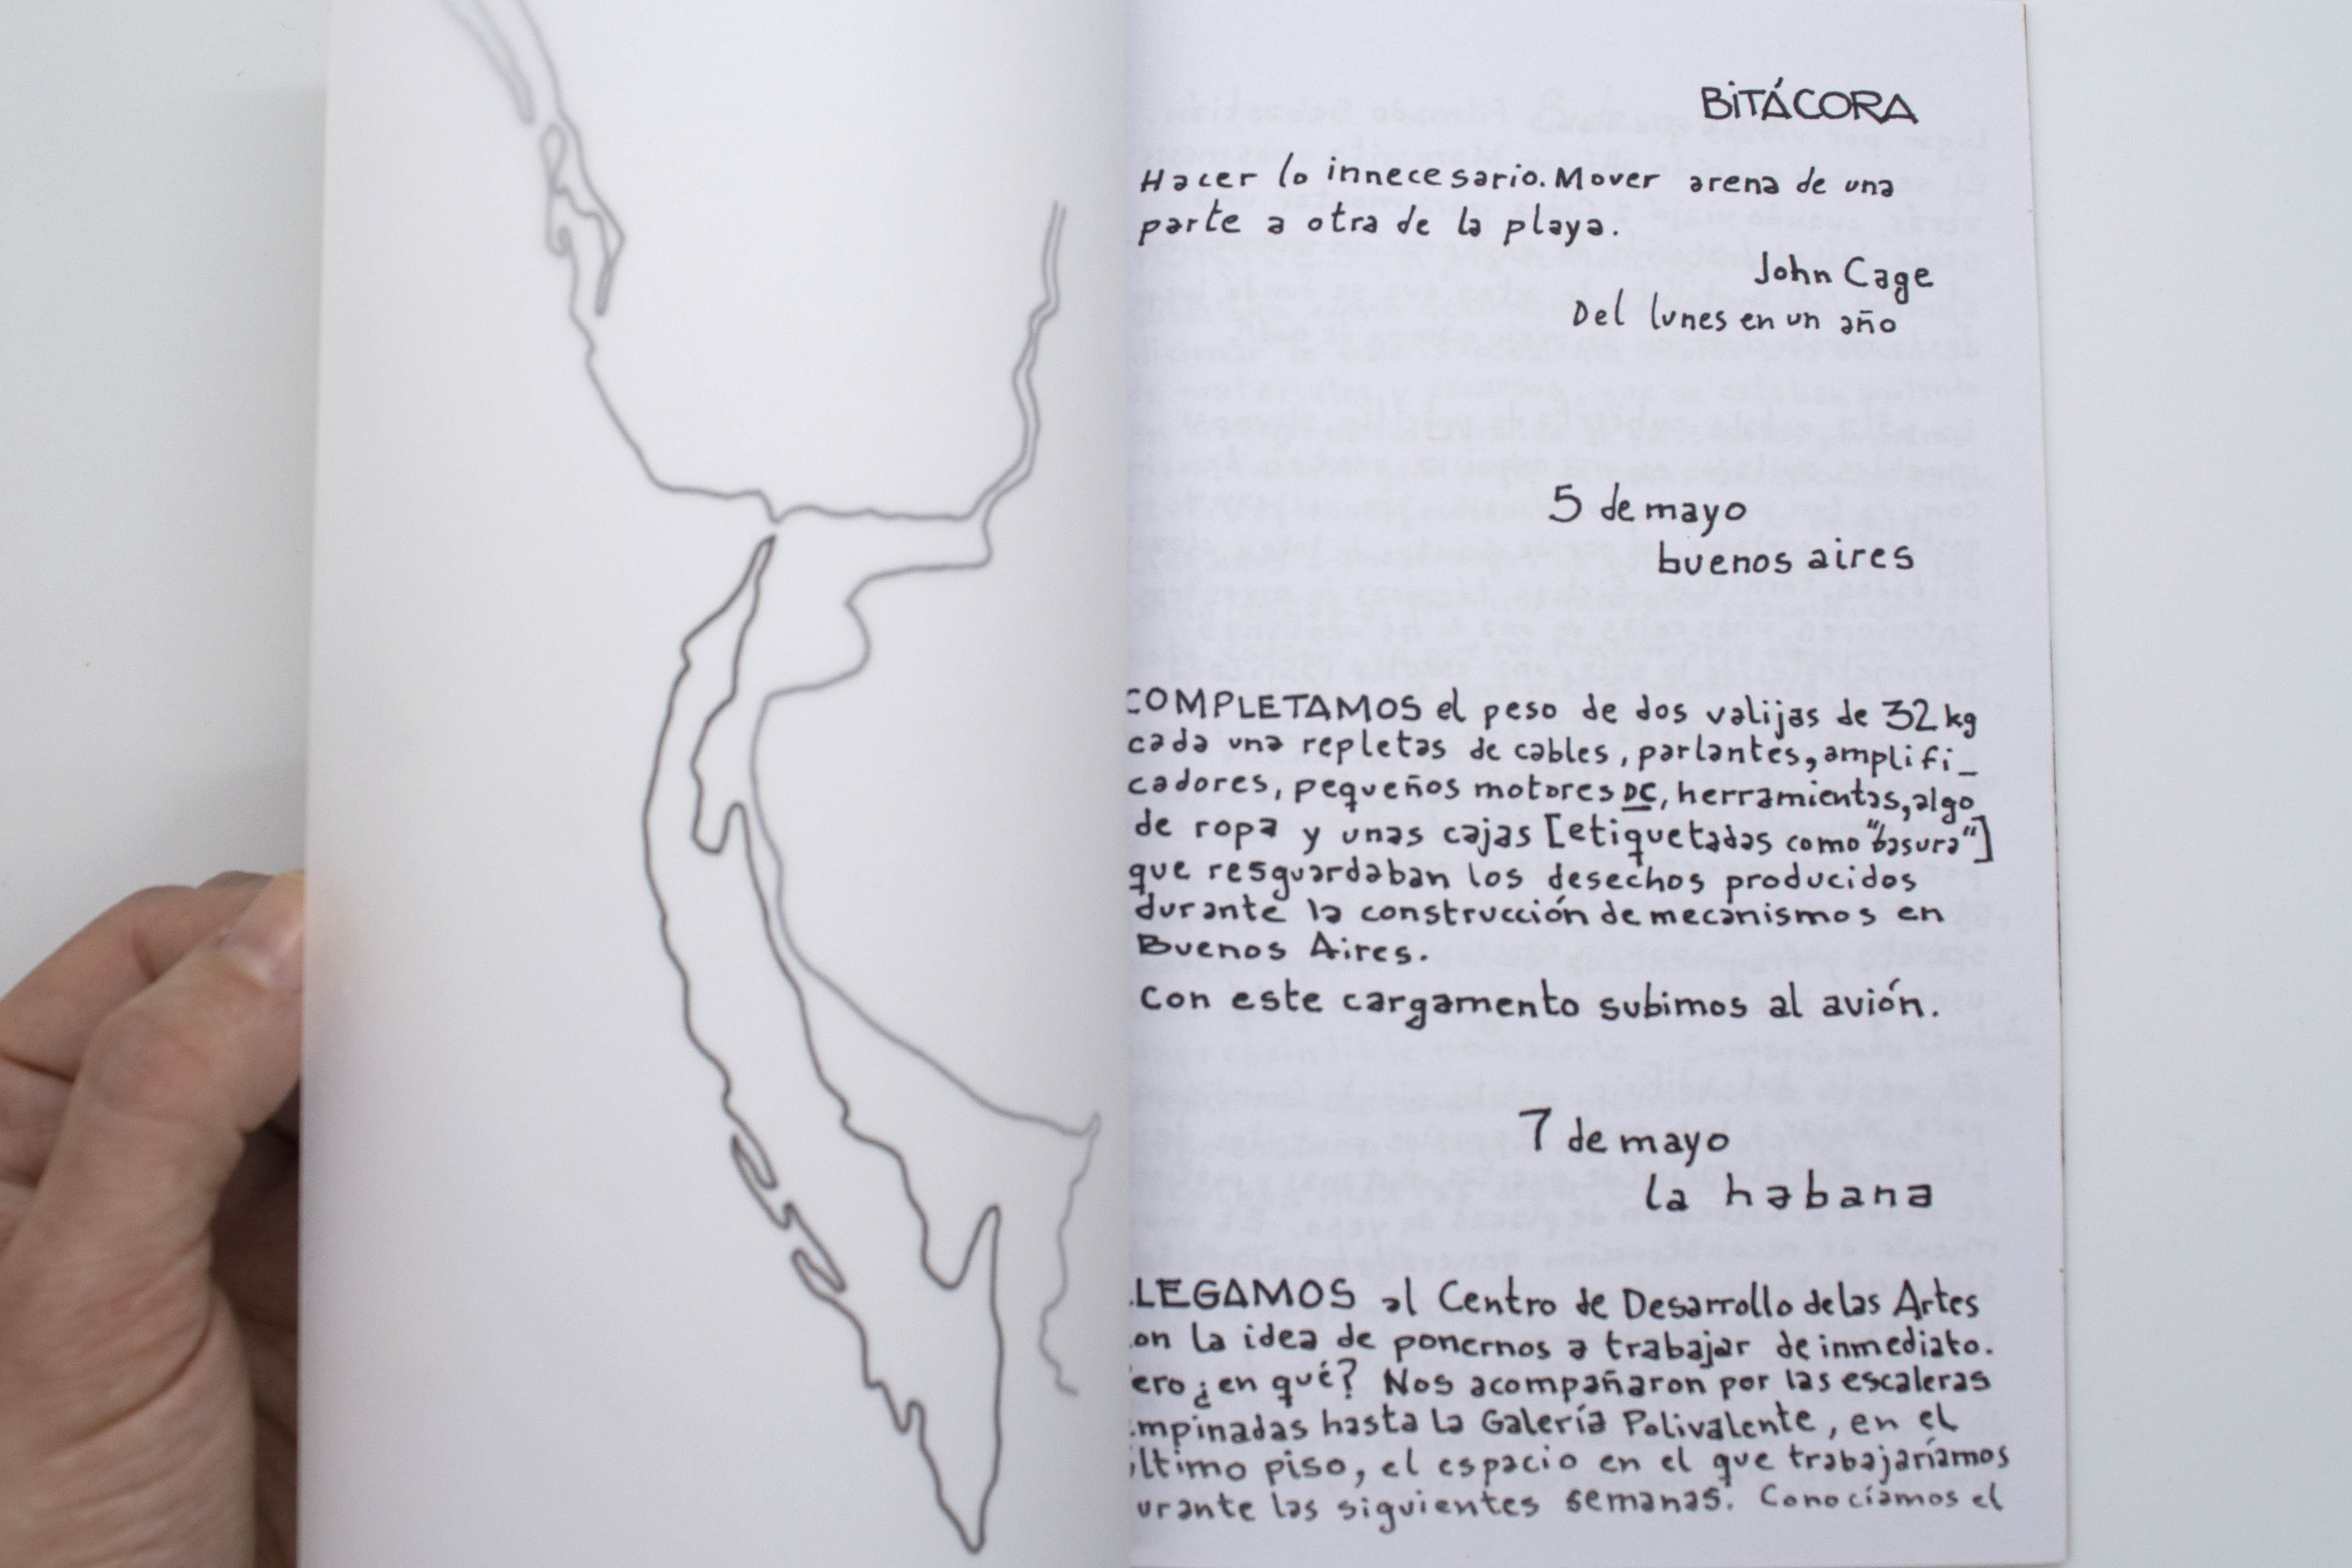 BITÁCORA
Hacer lo innecesario. Mover arena de una
parte a otra de la playa.
John Cage
Del lunes en un año
5 de mayo
buenos aires
COMPLETAMOS el peso de dos valijas de 32 kg
cada una repletas de cables, parlantes, amplifi_
cadores, pequeños motores DC, herramientas, algo
de ropa y unas cajas [etiquetadas como "basura"]
que resguardaban los desechos producidos
durante la construcción de mecanismos en
Buenos Aires.
Con este cargamento subimos al avión.
7 de mayo
la habana
LLEGAMOS al Centro de Desarrollo de las Artes
con la idea de ponernos a trabajar de inmediato.
Pero ¿en qué? Nos acompañaron por las escaleras
empinadas hasta la Galería Polivalente, en el
último piso, el espacio en el que trabajaríamos
durante las siguientes semanas. Conocíamos el